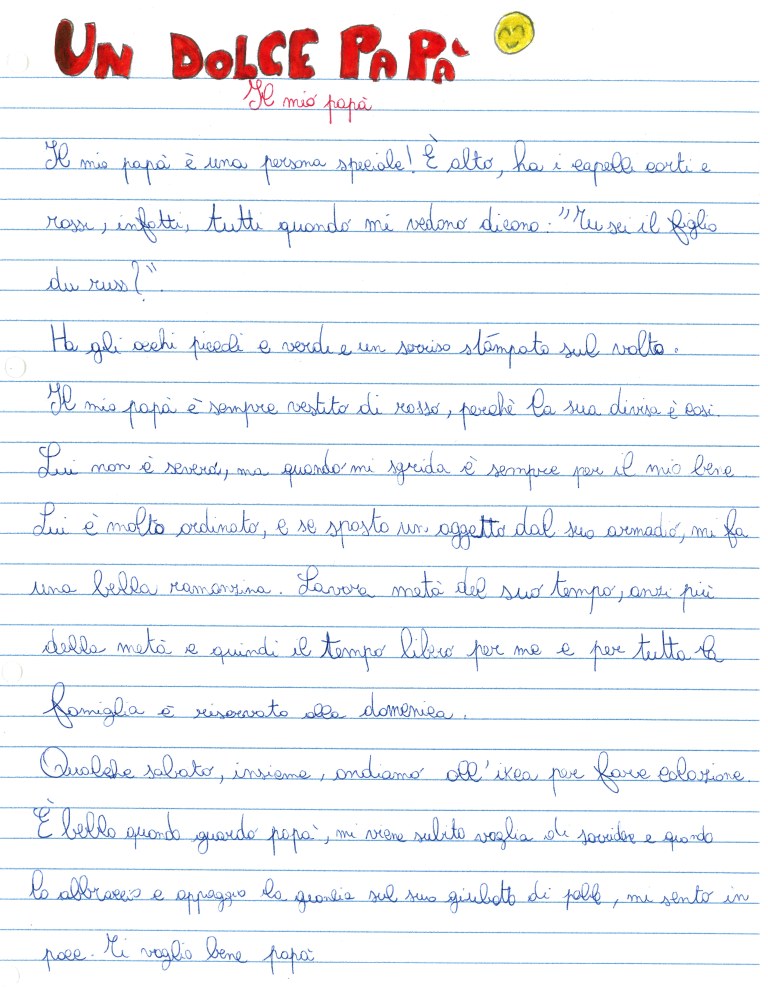 UN DOLCE PAPÀ
Il mio papà
Il mio papà è una persona speciale! È alto, ha i capelli corti e
rossi, infatti, tutti quando mi vedono dicono: "Tu sei il figlio
du russ?".
Ha gli occhi piccoli e verdi e un sorriso stampato sul volto.
Il mio papà è sempre vestito di rosso, perché la sua divisa è così.
Lui non è severo, ma quando mi sgrida è sempre per il mio bene
Lui è molto ordinato, e se sposto un oggetto dal suo armadio, mi fa
una bella ramanzina. Lavora metà del suo tempo, anzi più
della metà e quindi il tempo libero per me e per tutta la
famiglia è riservato alla domenica.
Qualche sabato, insieme, andiamo all'ikea per fare colazione.
È bello quando guardo papà, mi viene subito voglia di sorridere e quando
lo abbraccio e appoggio la guancia sul suo giubotto di pelle, mi sento in
pace. Ti voglio bene papà